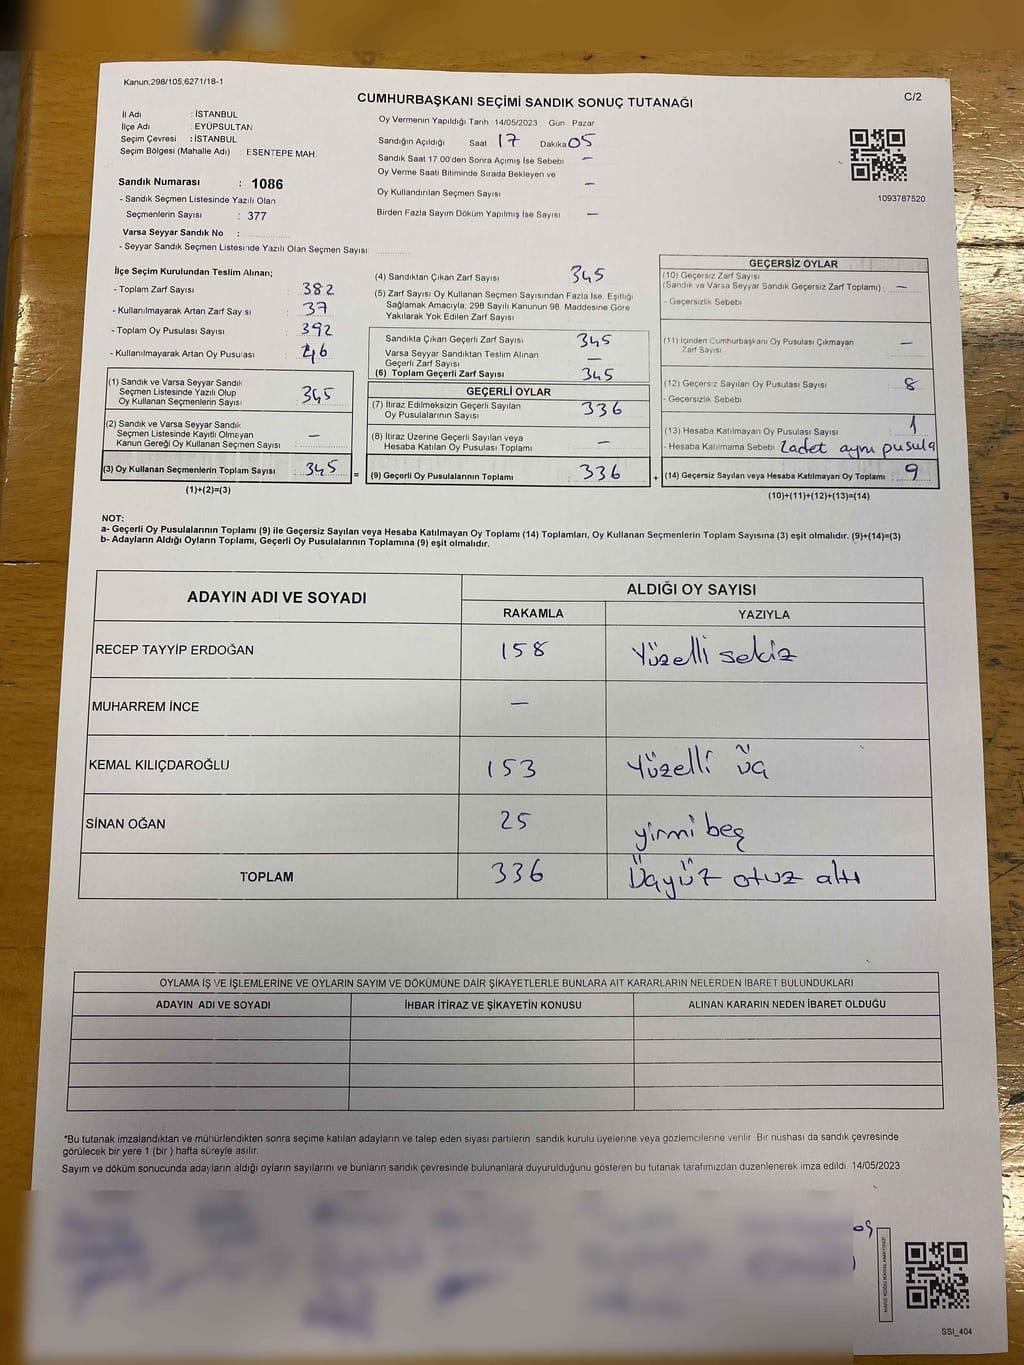 Kanun,298/105,6271/18-1
CUMHURBAŞKANI SEÇİMİ SANDIK SONUÇ TUTANAĞI
C/2
İl Adı : İSTANBUL
İlçe Adı : EYÜPSULTAN
Seçim Çevresi : İSTANBUL
Seçim Bölgesi (Mahalle Adı) : ESENTEPE MAH.
Oy Vermenin Yapıldığı Tarih :14/05/2023 Gün Pazar
Sandığın Açıldığı Saat 17 Dakika 05
Sandık Saat 17 00'den Sonra Açımış İse Sebebi –
Oy Verme Saati Bitiminde Sırada Bekleyen ve
Oy Kullandırılan Seçmen Sayısı –
Birden Fazla Sayım Döküm Yapılmış İse Sayısı –
1093787520
Sandık Numarası : 1086
- Sandık Seçmen Listesinde Yazılı Olan
Seçmenlerin Sayısı : 377
Varsa Seyyar Sandık No :
- Seyyar Sandık Seçmen Listesinde Yazılı Olan Seçmen Sayısı:
İlçe Seçim Kurulundan Teslim Alınan;
- Toplam Zarf Sayısı : 382
- Kullanılmayarak Artan Zarf Sayısı : 37
- Toplam Oy Pusulası Sayısı : 392
- Kullanılmayarak Artan Oy Pusulası : 46
(1) Sandık ve Varsa Seyyar Sandık
Seçmen Listesinde Yazılı Olup
Oy Kullanan Seçmenlerin Sayısı : 345
(2) Sandık ve Varsa Seyyar Sandık
Seçmen Listesinde Kayıtlı Olmayan
Kanun Gereği Oy Kullanan Seçmen Sayısı : –
(3) Oy Kullanan Seçmenlerin Toplam Sayısı : 345
(1)+(2)=(3)
(4) Sandıktan Çıkan Zarf Sayısı : 345
(5) Zarf Sayısı Oy Kullanan Seçmen Sayısından Fazla İse, Eşitliği
Sağlamak Amacıyla, 298 Sayılı Kanunun 98 Maddesine Göre
Yakılarak Yok Edilen Zarf Sayısı :
Sandıkta Çıkan Geçerli Zarf Sayısı : 345
Varsa Seyyar Sandıktan Teslim Alınan
Geçerli Zarf Sayısı : –
(6) Toplam Geçerli Zarf Sayısı : 345
GEÇERLİ OYLAR
(7) İtiraz Edilmeksizin Geçerli Sayılan
Oy Pusulalarının Sayısı : 336
(8) İtiraz Üzerine Geçerli Sayılan veya
Hesaba Katılan Oy Pusulası Toplamı : –
= (9) Geçerli Oy Pusulalarının Toplamı : 336
GEÇERSİZ OYLAR
(10) Geçersiz Zarf Sayısı
(Sandık ve Varsa Seyyar Sandık Geçersiz Zarf Toplamı) : –
- Geçersizlik Sebebi
(11) İçinden Cumhurbaşkanı Oy Pusulası Çıkmayan
Zarf Sayısı : –
(12) Geçersiz Sayılan Oy Pusulası Sayısı : 8
- Geçersizlik Sebebi
(13) Hesaba Katılmayan Oy Pusulası Sayısı : 1
- Hesaba Katılmama Sebebi 2 adet aynı pusula
+ (14) Geçersiz Sayılan veya Hesaba Katılmayan Oy Toplamı : 9
(10)+(11)+(12)+(13)=(14)
NOT:
a- Geçerli Oy Pusulalarının Toplamı (9) ile Geçersiz Sayılan veya Hesaba Katılmayan Oy Toplamı (14) Toplamları, Oy Kullanan Seçmenlerin Toplam Sayısına (3) eşit olmalıdır. (9)+(14)=(3)
b- Adayların Aldığı Oyların Toplamı, Geçerli Oy Pusulalarının Toplamına (9) eşit olmalıdır.
ADAYIN ADI VE SOYADI
ALDIĞI OY SAYISI
RAKAMLA YAZIYLA
RECEP TAYYİP ERDOĞAN 158 Yüzelli sekiz
MUHARREM İNCE –
KEMAL KILIÇDAROĞLU 153 Yüzelli üç
SİNAN OĞAN 25 yirmi beş
TOPLAM 336 Üçyüz otuz altı
OYLAMA İŞ VE İŞLEMLERİNE VE OYLARIN SAYIM VE DÖKÜMÜNE DAİR ŞİKAYETLERLE BUNLARA AİT KARARLARIN NELERDEN İBARET BULUNDUKLARI
ADAYIN ADI VE SOYADI İHBAR İTİRAZ VE ŞİKAYETİN KONUSU ALINAN KARARIN NEDEN İBARET OLDUĞU
*Bu tutanak imzalandıktan ve mühürlendikten sonra seçime katılan adayların ve talep eden siyasi partilerin sandık kurulu üyelerine veya gözlemcilerine verilir. Bir nüshası da sandık çevresinde
görülecek bir yere 1 (bir ) hafta süreyle asılır.
Sayım ve döküm sonucunda adayların aldığı oyların sayılarını ve bunların sandık çevresinde bulunanlara duyurulduğunu gösteren bu tutanak tarafımızdan düzenlenerek imza edildi. 14/05/2023
SSI_404